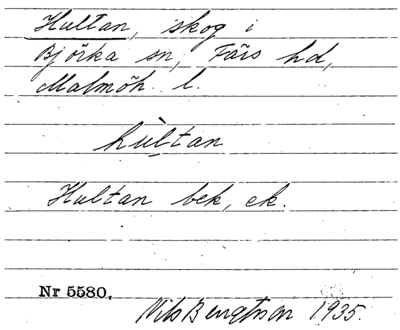 Hultan, skog i
Björka sn, Färs hd,
Malmöh. l.
hùltan
Hultan bek, ek.
Nr 5580.
Nils Bengtson 1935.